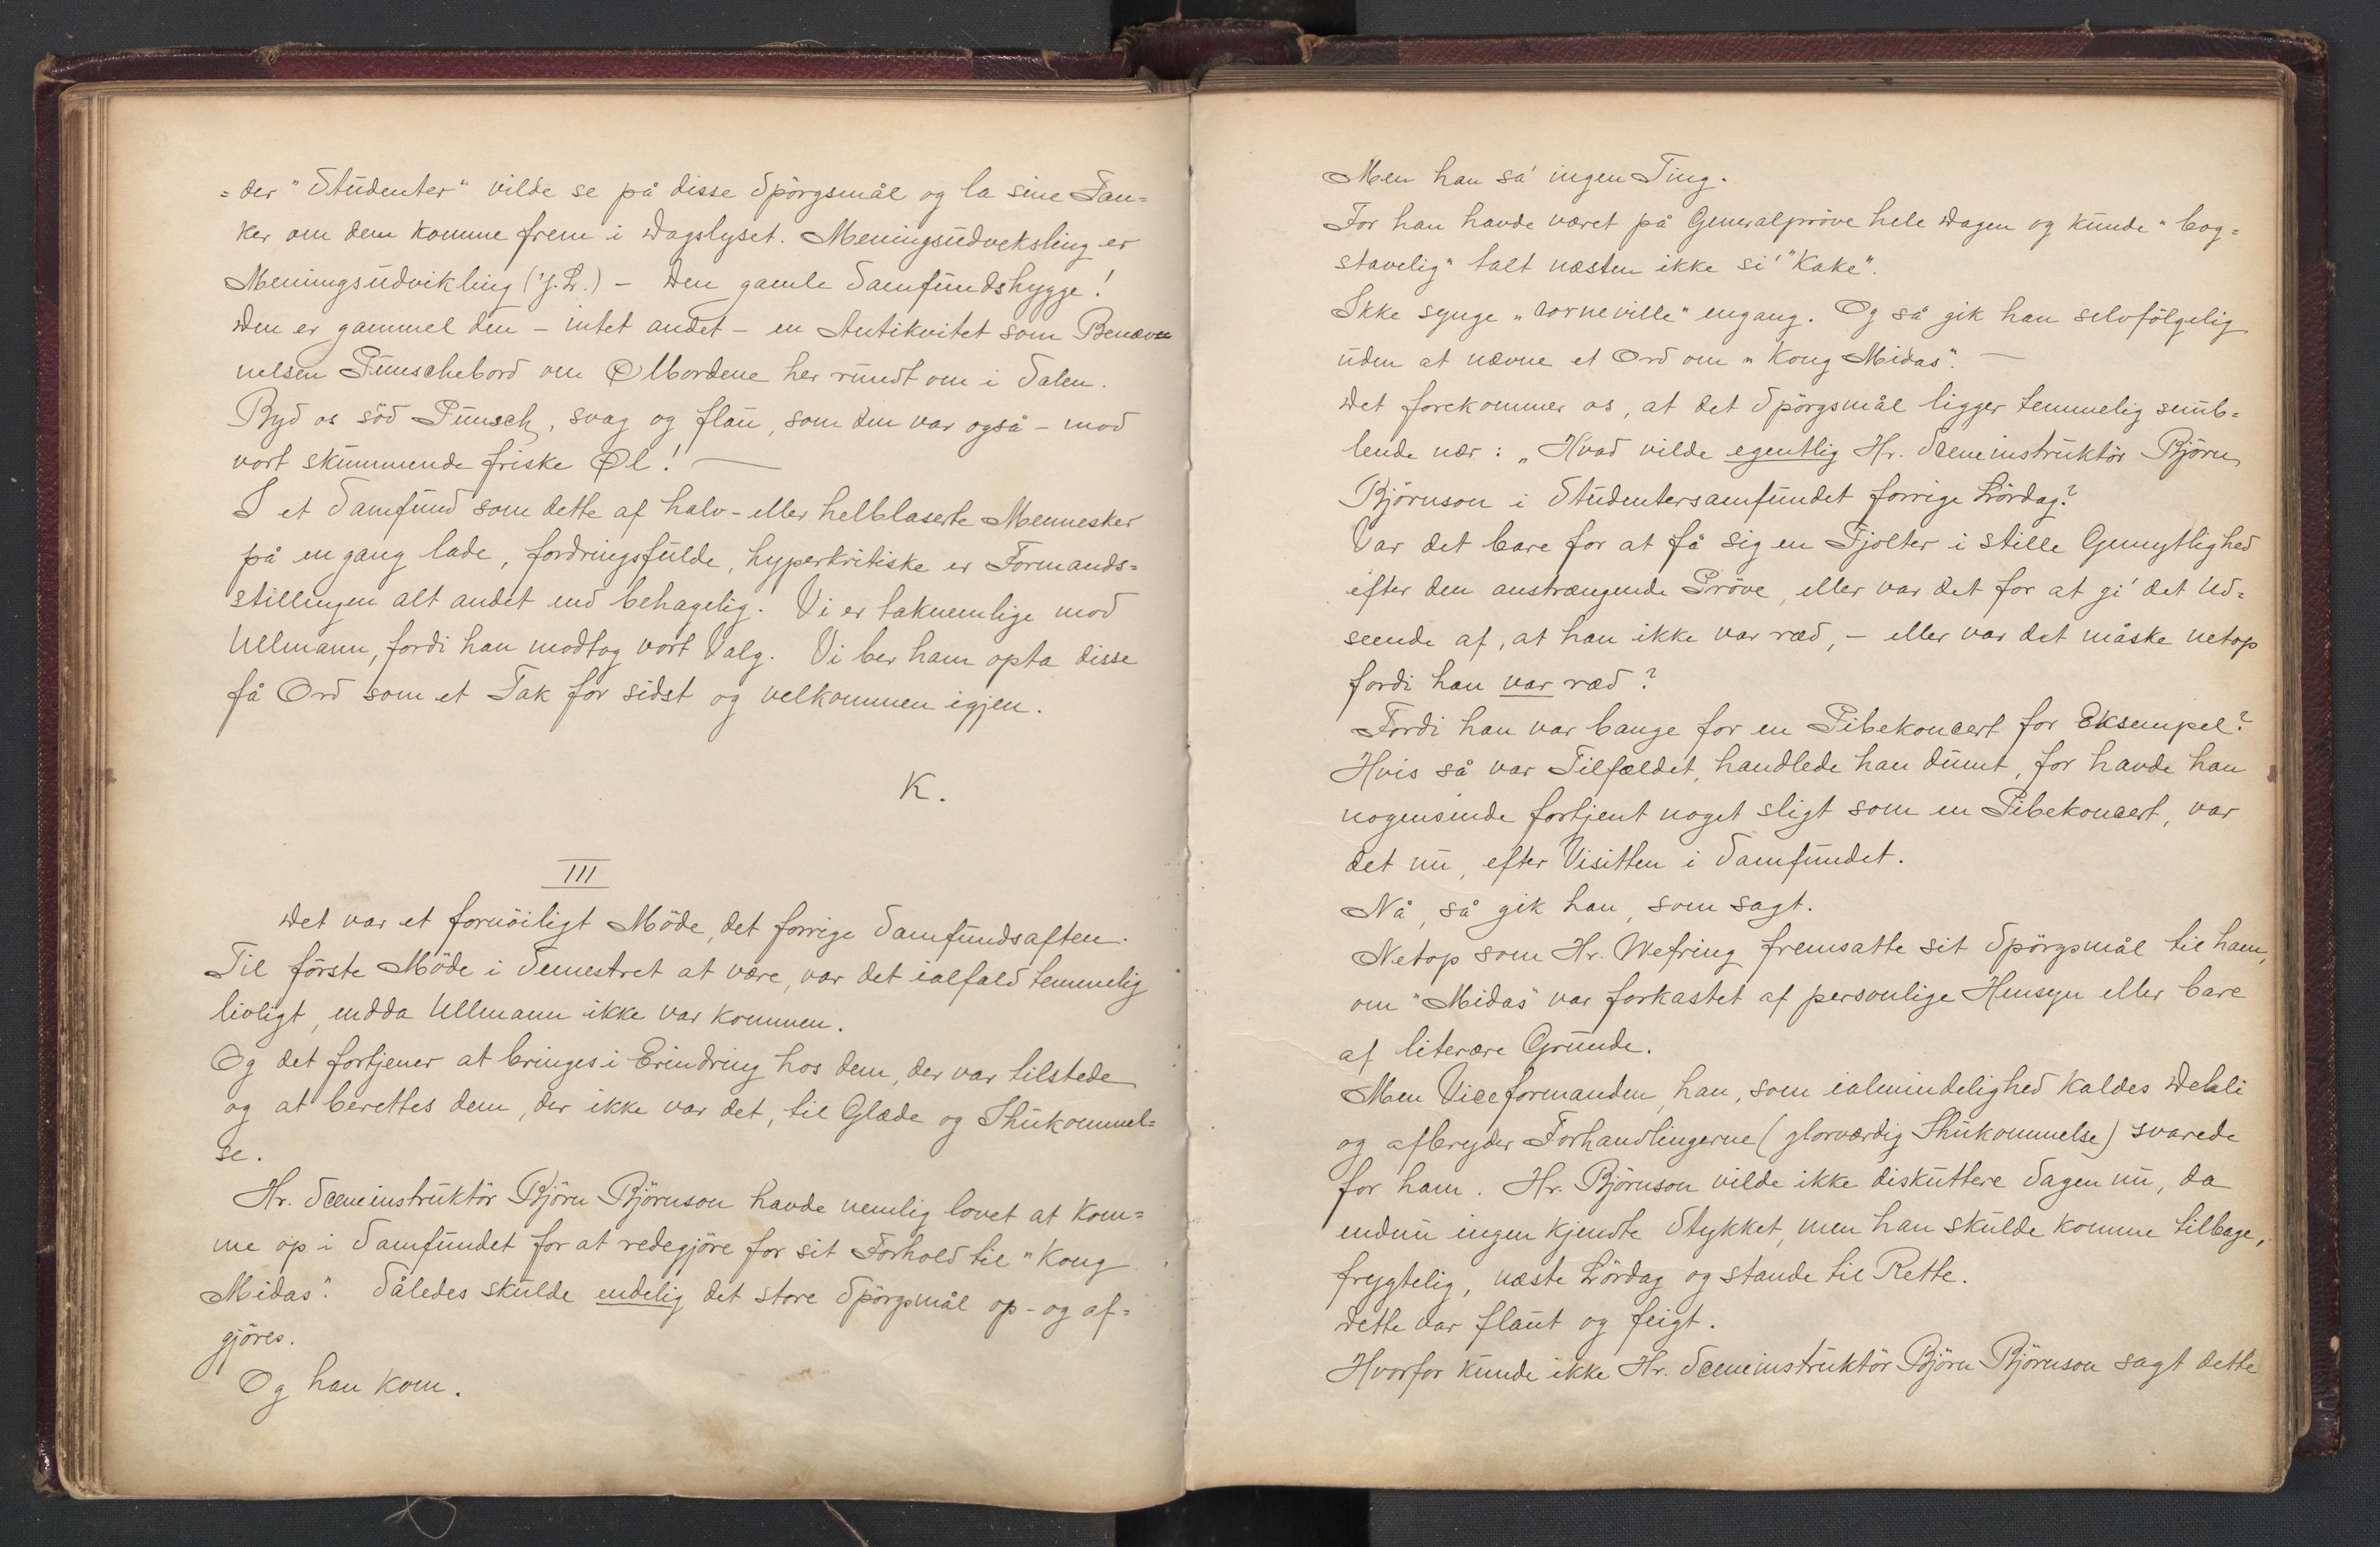 = der "Studenter" vilde se på disse Spörgsmål og la sine Tan=
ker om dem komme frem i Dagslyset. Meningsudveksling er
Meningsudvikling (J. L.) – Den gamle Samfundshygge!
Den er gammel den – intet andet – en Antikvitet som Benæv=
nelsen Punschebord om Ølbordene her rundt om i Salen.
Byd os söd Punsch, svag og flau, som den var også – mod
vort skummende friske Øl! —
I et Samfund som dette af halv- eller helblaserte Mennesker
på en gang lade, fordringsfulde, hyperkritiske er Formands=
stillingen alt andet end behagelig. Vi er taknemlige mod
Ullmann, fordi han modtog vort Valg. Vi ber ham opta disse
få Ord som et Tak for sidst og velkommen igjen.
K.
III
Det var et fornöiligt Möde, det forrige Samfundsaften.
Til förste Möde i Semestret at være, var det ialfald temmelig
livligt, endda Ullmann ikke var kommen.
Og det fortjener at bringes i Erindring hos dem, der var tilstede
og at berettes dem, der ikke var det, til Glæde og Ihukommel=
se.
Hr. Sceneinstruktör Björn Björnson havde nemlig lovet at kom=
me op i Samfundet for at redegjöre for sit Forhold til "Kong
Midas". Således skulde endelig det store Spörgsmål op- og af=
gjöres.
Og han kom.
Men han sa' ingen Ting.
For han havde været på Generalpröve hele Dagen og kunde "bog=
stavelig" talt næsten ikke si' "Kake".
Ikke synge "Corneville" engang. Og så gik han selvfölgelig
uden at nævne et Ord om "Kong Midas". —
Det forekommer os, at det Spörgsmål ligger temmelig snub=
lende nær: "Hvad vilde egentlig Hr. Sceneinstruktör Björn
Björnson i Studentersamfundet forrige Lördag?
Var det bare for at få sig en Pjolter i stille Gemytlighed
efter den anstrængende Pröve, eller var det for at gi' det Ud=
seende af, at han ikke var ræd, – eller var det måske netop
fordi han var ræd?
Fordi han var bange for en Pibekoncert for Eksempel?
Hvis så var Tilfældet, handlede han dumt, for havde han
nogensinde fortjent noget sligt som en Pibekoncert, var
det nu, efter Visitten i Samfundet.
Nå, så gik han, som sagt.
Netop som Hr. Wefring fremsatte sit Spörgsmål til ham,
om "Midas" var forkastet af personlige Hensyn eller bare
af literære Grunde.
Men Viceformanden, han, som ialmindelighed kaldes Dehli
og afbryder Forhandlingerne (glorværdig Ihukommelse) svarede
for ham. Hr. Björnson vilde ikke diskuttere Sagen nu, da
endnu ingen kjendte Stykket, men han skulde komme tilbage,
frygtelig, næste Lördag og stande til Rette.
Dette var flaut og feigt.
Hvorfor kunde ikke Hr. Sceneinstruktör Björn Björnson sagt dette